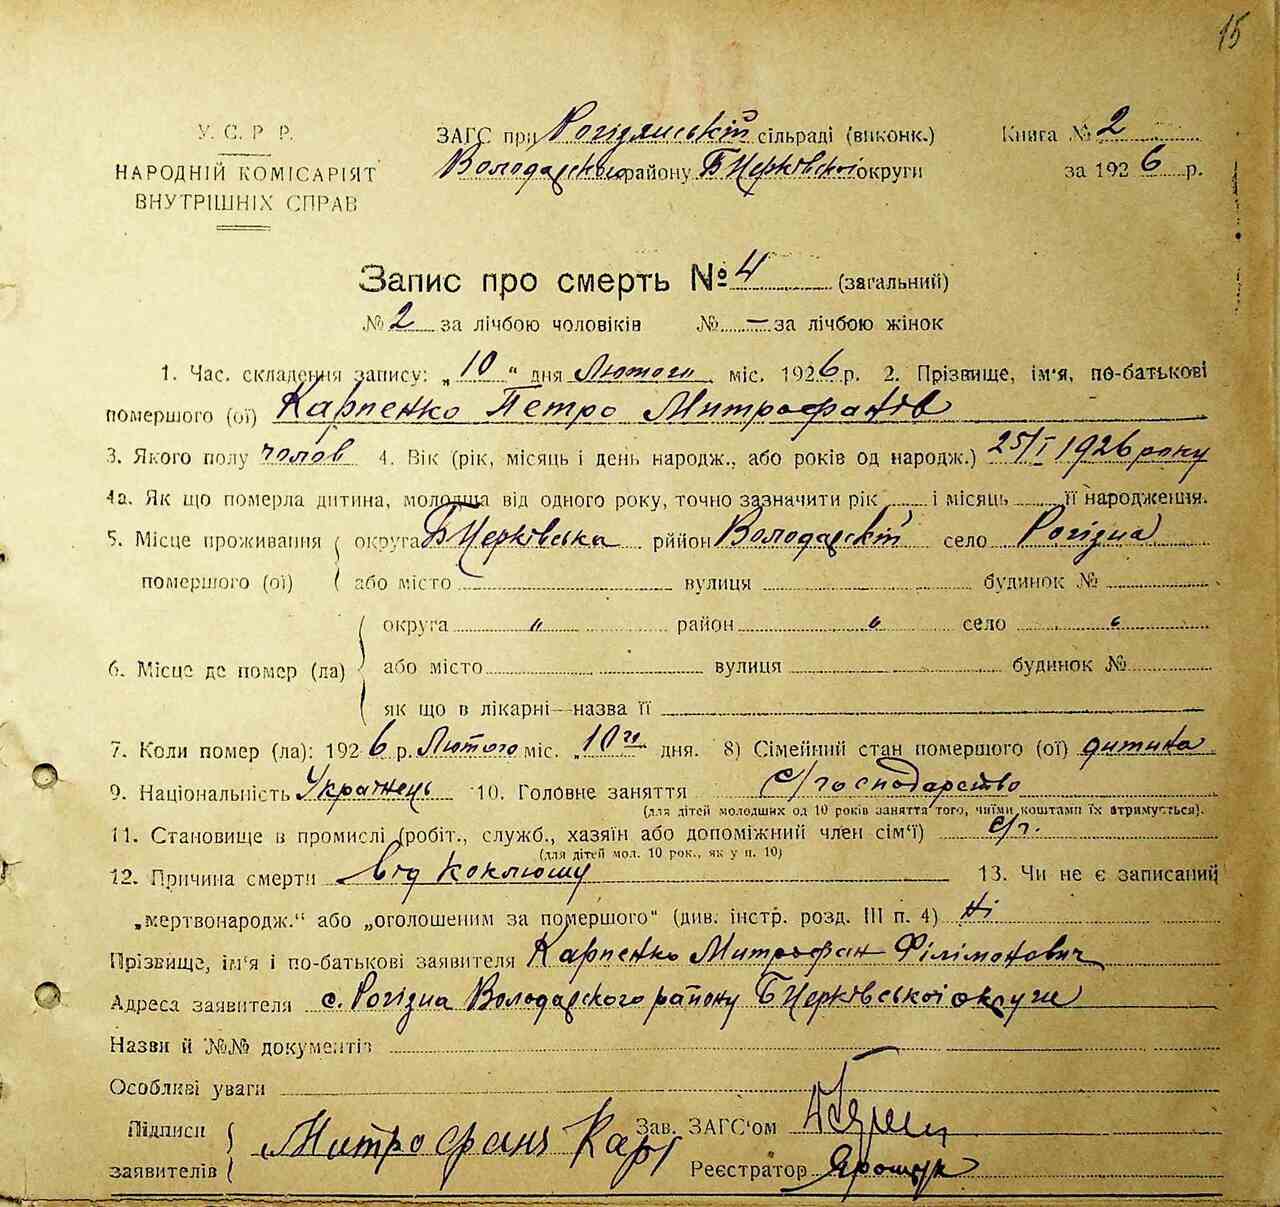 15
У. С. Р. Р.
НАРОДНІЙ КОМІСАРІЯТ
ВНУТРІШНІХ СПРАВ
ЗАГС при Рогізянській сільраді (виконк.)
Володарського району Б Церківської округи
Книга № 2
за 1926 р.
Запис про смерть № 4 (загальний)
№ 2 за лічбою чоловіків № — за лічбою жінок
1. Час. складення запису: „10“ дня Лютого міс. 1926 р. 2. Прізвище, ім'я, по-батькові
помершого (ої) Карпенко Петро Митрофанів
3. Якого полу чолов 4. Вік (рік, місяць і день народж., або років од народж.) 25/I 1926 року
4а. Як що померла дитина, молодша від одного року, точно зазначити рік і місяць її народження.
5. Місце проживання помершого (ої) округа Б Церківська рйион Володарскій село Рогізна
або місто вулиця будинок №
6. Місце де помер (ла) округа " район " село "
або місто вулиця будинок №
як що в лікарні—назва її
7. Коли помер (ла): 1926 р. Лютого міс. „10го дня. 8) Сімейний стан помершого (ої) дитина
9. Національність Українець 10. Головне заняття с/господарство
(для дітей молодших од 10 років заняття того, чиїми коштами їх втримується).
11. Становище в промислі (робіт., служб., хазяїн або допоміжний член сім'ї) с/г.
(для дітей мол. 10 рок., як у п. 10)
12. Причина смерти від коклюшу 13. Чи не є записаний
„мертвонародж.“ або „оголошеним за помершого“ (див. інстр. розд. III п. 4) ні
Прізвище, ім'я і по-батькові заявителя Карпенко Митрофан Філімонович
Адреса заявителя с. Рогізна Володарского району Б Церківської округи
Назви й №№ документів
Особливі уваги
Підписи заявителів Митрофанъ Карп
Зав. ЗАГС'ом
Реєстратор Ярощук